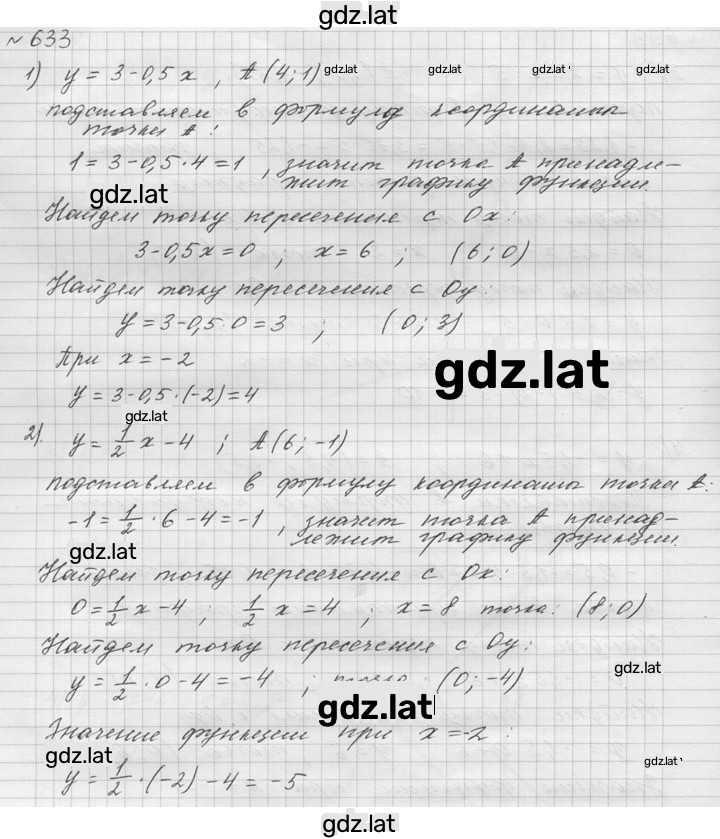 gdz.lat
№ 633
1) y = 3 - 0,5x , A (4; 1) gdz.lat gdz.lat gdz.lat
подставляем в формулу координаты
точки A:
1 = 3 - 0,5 · 4 = 1 , значит точка A принадле-
gdz.lat жит графику функции.
Найдем точку пересечения с Ox:
3 - 0,5x = 0 ; x = 6 ; (6; 0)
Найдем точку пересечения с Oy:
y = 3 - 0,5 · 0 = 3 ; (0; 3)
При x = -2
gdz.lat
y = 3 - 0,5 · (-2) = 4
gdz.lat
2). y = 1/2 x - 4 ; A (6; -1)
подставляем в формулу координаты точки A:
-1 = 1/2 · 6 - 4 = -1 , значит точка A принад-
gdz.lat лежит графику функции.
Найдем точку пересечения с Ox:
0 = 1/2 x - 4 ; 1/2 x = 4 ; x = 8 точка: (8; 0)
Найдем точку пересечения с Oy:
y = 1/2 · 0 - 4 = -4 ; (0; -4) gdz.lat
gdz.lat
Значение функции при x = -2 :
gdz.lat gdz.lat
y = 1/2 · (-2) - 4 = -5
gdz.lat